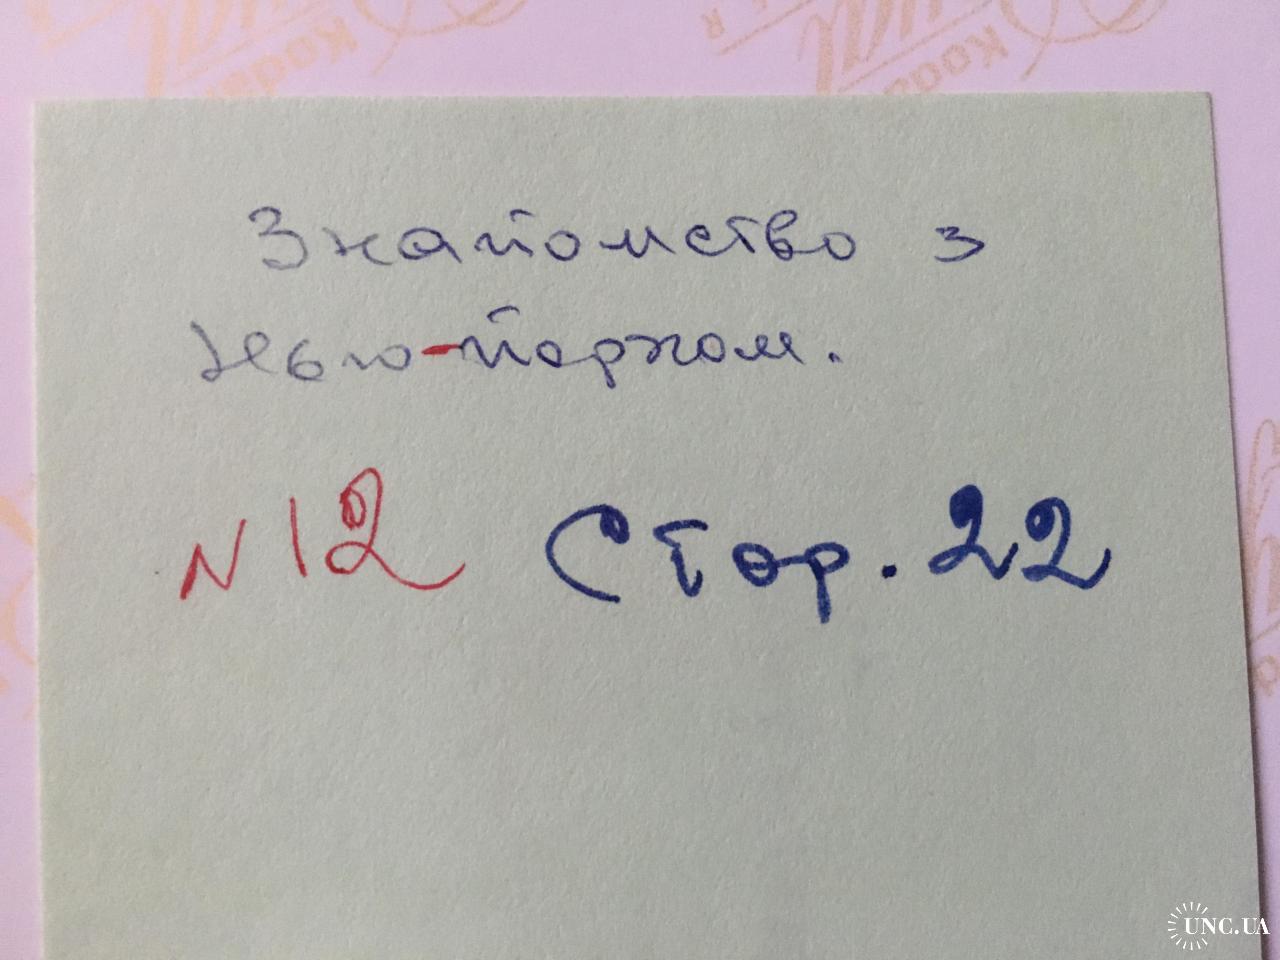 Знайомство з
Нью-Йорком.
N 12 Стор. 22
UNC.UA